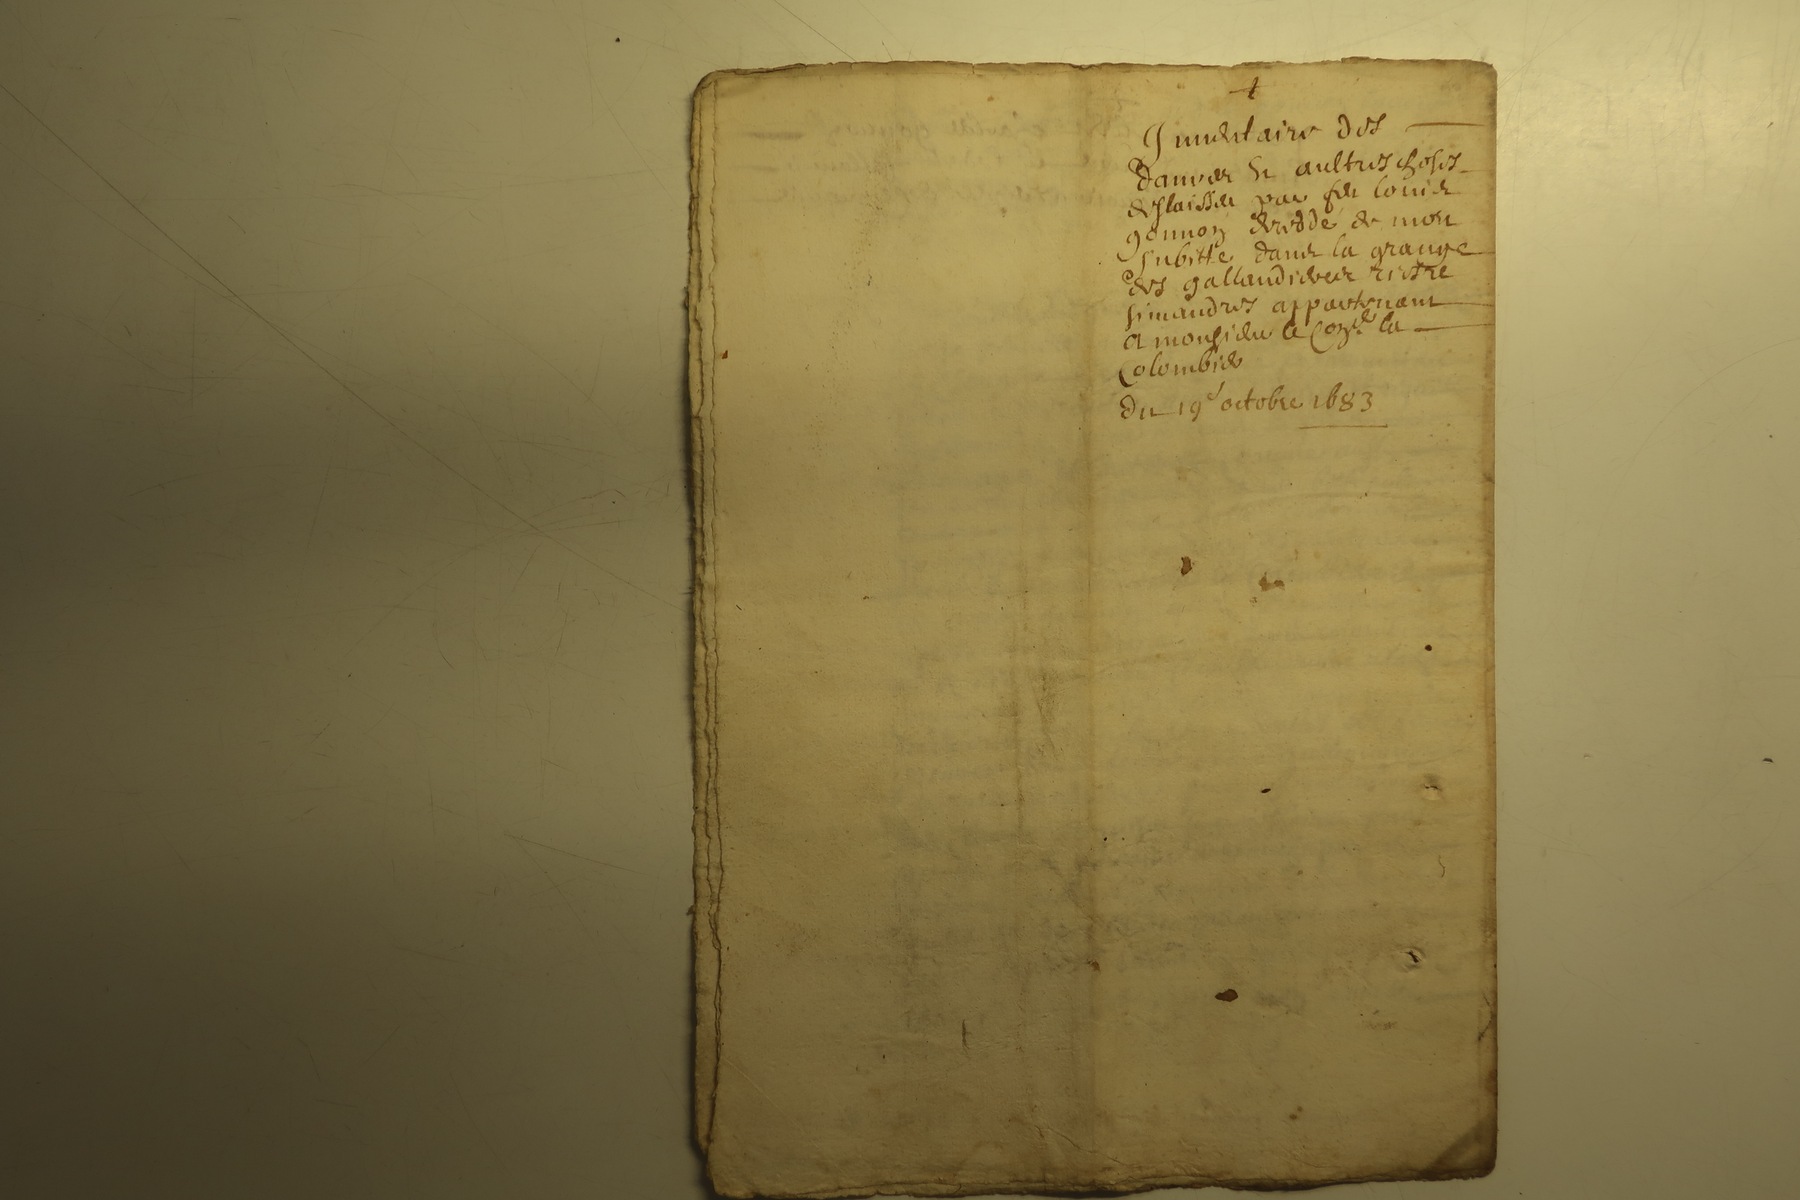 Inventaire des
danrer et aultres choses
deslaisser par feu louis
gonnon decedde de mort
subitte dans la grange
des gallandieres riere
simandres appartenant
a monsieur le Con.er la
Colombie
du 19e octobre 1683